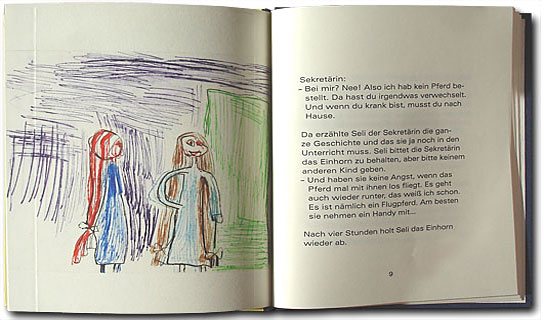 Sekretärin:
– Bei mir? Nee! Also ich hab kein Pferd be-
stellt. Da hast du irgendwas verwechselt.
Und wenn du krank bist, musst du nach
Hause.
Da erzählte Seli der Sekretärin die gan-
ze Geschichte und das sie ja noch in den
Unterricht muss. Seli bittet die Sekretärin
das Einhorn zu behalten, aber bitte keinem
anderen Kind geben.
– Und haben sie keine Angst, wenn das
Pferd mal mit ihnen los fliegt. Es geht
auch wieder runter, das weiß ich schon.
Es ist nämlich ein Flugpferd. Am besten
sie nehmen ein Handy mit...
Nach vier Stunden holt Seli das Einhorn
wieder ab.
9